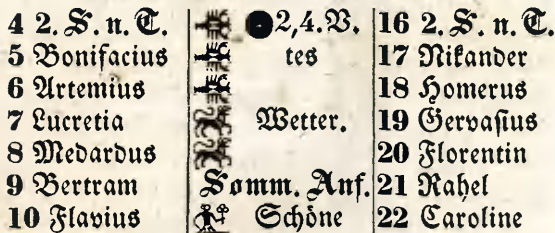 4 2. S. n. T. 2,4. V. 16 2. S. n. T.
5 Bonifacius tes 17 Nikander
6 Artemius 18 Homerus
7 Lucretia Wetter. 19 Gervasius
8 Medardus 20 Florentin
9 Bertram Somm. Anf. 21 Rahel
10 Flavius Schöne 22 Caroline